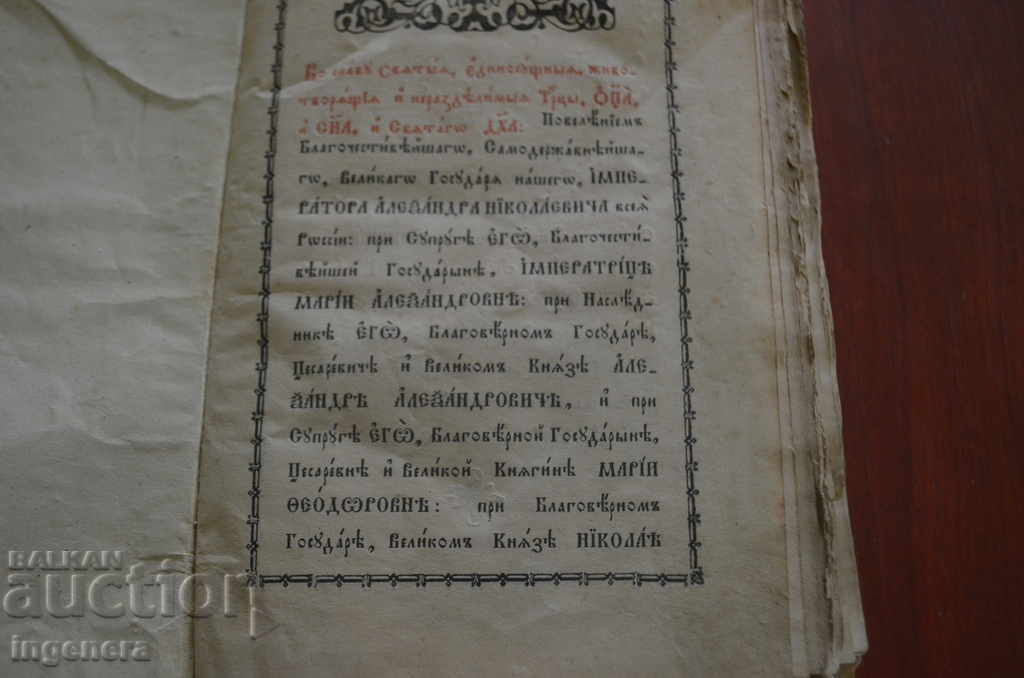 Во славу Святыѧ, є҆диносꙋ́щныѧ, живо-
творѧ́щїѧ и҆ нераздѣли́мыѧ Трⷪ҇цы, Ѻ҆ц҃а̀,
и҆ Сн҃а, и҆ Свѧта́гѡ Дх҃а: Повелѣ́нїемъ
Благочести́вѣйшагѡ, Самодержа́внѣйша-
гѡ, Вели́кагѡ Госꙋда́рѧ на́шегѡ, И҆МПЕ-
РА́ТОРА А҆ЛЕѮА́НДРА НІКОЛА́ЕВИЧА всеѧ̀
Рѡссі́и: при Сꙋпрꙋ́гѣ Є҆ГѠ̀, Благочести́-
вѣйшей Госꙋда́рынѣ, И҆МПЕРАТРИ́ЦѢ
МАРІ́И А҆ЛЕѮА́НДРОВНѢ: при Наслѣ́д-
никѣ Є҆ГѠ̀, Благовѣ́рномъ Госꙋда́рѣ,
Цесаре́вичѣ и҆ Вели́комъ Кнѧ́зѣ А҆ЛЕ-
ѮА́НДРѢ А҆ЛЕѮА́НДРОВИЧѢ, и҆ при
Сꙋпрꙋ́гѣ Є҆ГѠ̀, Благовѣ́рной Госꙋда́рынѣ,
Цесаре́внѣ и҆ Вели́кой Кнѧги́нѣ МАРІ́И
ѲЕО́ДѠРОВНѢ: при Благовѣ́рномъ
Госꙋда́рѣ, Вели́комъ Кнѧ́зѣ НІКОЛА́Ѣ
BALKAN
auction
ingenera